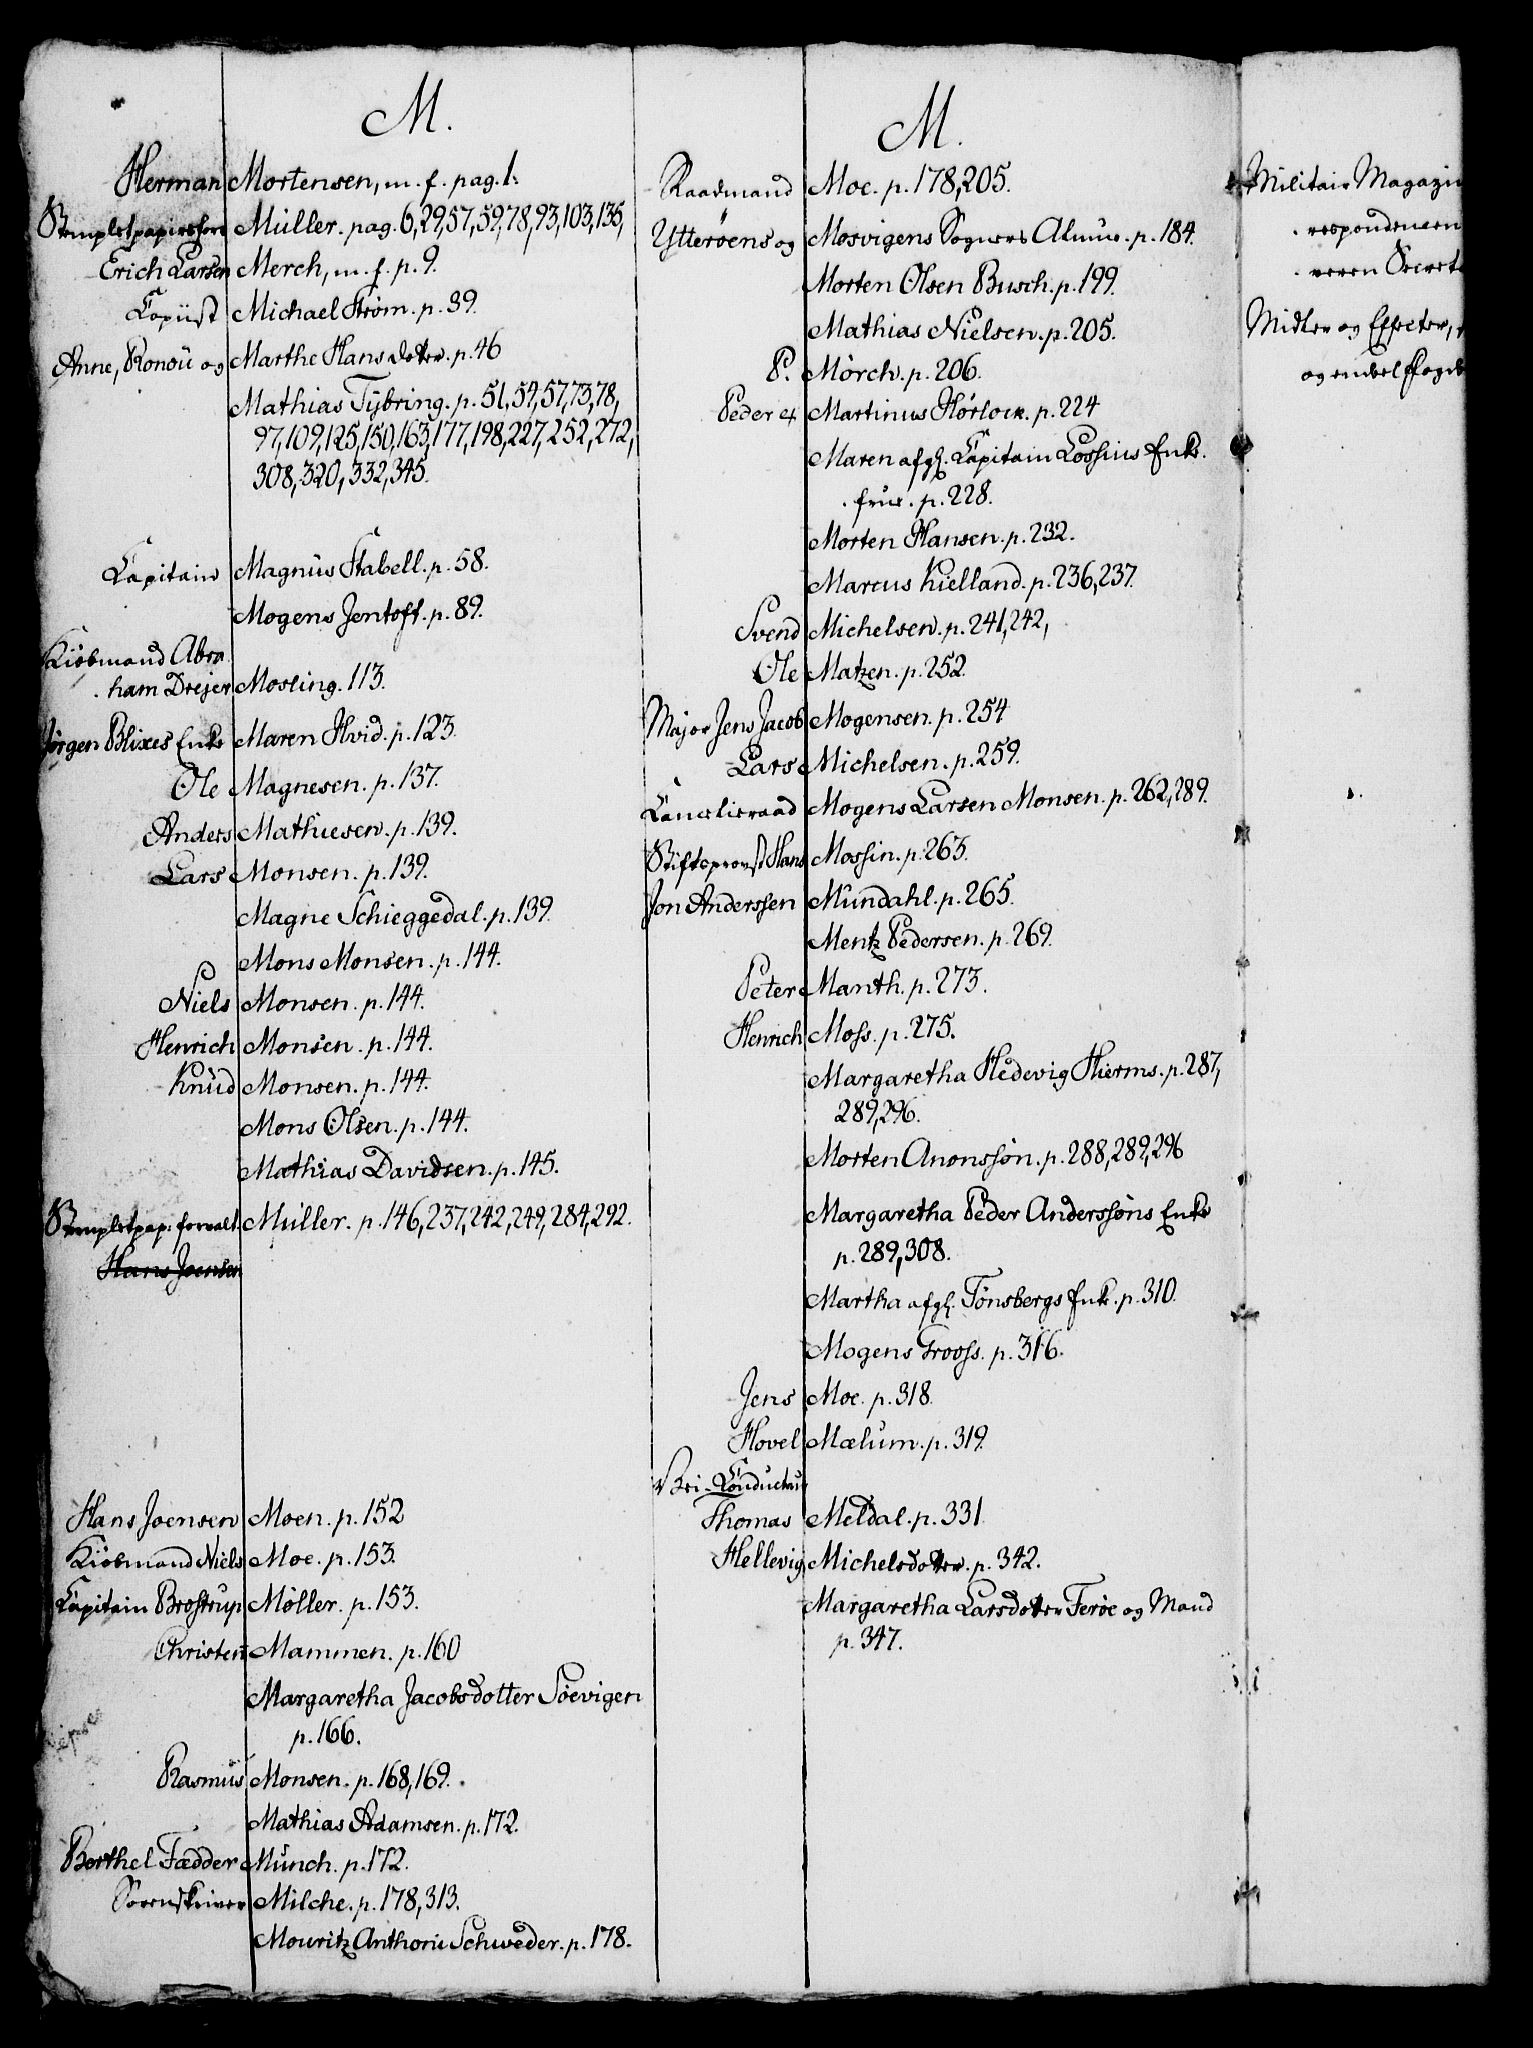 M.
Herman Mortensen, m. f. pag. 1.
Stempletpapiersforv Müller. pag. 6, 29, 57, 59, 78, 93, 103, 135,
Erich Larsen Merch, m. f. p. 9.
Copiist Michael Strøm. p. 39.
Anne, Ronou og Marthe Hansdoter. p. 46
Mathias Tÿbring. p. 51, 54, 57, 73, 78,
97, 109, 125, 150, 163, 177, 198, 227, 252, 272,
308, 320, 332, 345.
Capitain Magnus Stabell. p. 58.
Mogens Jentoft. p. 89.
Kiøbmand Abra
ham Drejer Mosling. 113.
Jørgen Blixes Enke Maren Hvid. p. 123.
Ole Magnesen. p. 137.
Anders Mathiesen. p. 139.
Lars Monsen. p. 139.
Magne Schieggedal. p. 139.
Mons Monsen. p. 144.
Niels Monsen. p. 144.
Henrich Monsen. p. 144.
Knud Monsen. p. 144.
Mons Olsen. p. 144.
Mathias Davidsen. p. 145.
Stempletpap: forvalt. Müller. p. 146, 237, 242, 249, 284, 292.
Hans Joensen
Hans Joensen Moen. p. 152
Kiøbmand Niels Moe. p. 153.
Capitain Brostrup Møller. p. 153.
Christen Mammen. p. 160
Margaretha Jacobsdotter Søevigen
p. 166.
Rasmus Monsen. p. 168, 169.
Mathias Adamsen. p. 172.
Berthel Fædder Münch. p. 172.
Sorenskriver Milche. p. 178, 313.
Mouritz Anthoni Schweder. p. 178.
M.
Raadmand Moe. p. 178, 205.
Ytterøens og Mosvigens Sognes Almue. p. 184.
Morten Olsen Busch. p. 199.
Mathias Nielsen. p. 205.
P. Mørch. p. 206.
Peder et Martinus Hørlock. p. 224
Maren afg. Capitain Lossius Enke
frue. p. 228.
Morten Hansen. p. 232.
Marcus Kielland. p. 236, 237.
Svend Michelsen. p. 241, 242,
Ole Matzen. p. 252.
Major Jens Jacob Mogensen. p. 254
Lars Michelsen. p. 259.
Cancelieraad Mogens Larsen Monsen. p. 262, 289.
Stiftsprovst Hans Mossin. p. 263.
Jon Anderssen Mundahl. p. 265.
Mentz Pedersen. p. 269.
Peter Manth. p. 273.
Henrich Moss. p. 275.
Margaretha Hedevig Hierms. p. 287,
289, 296.
Morten Anonssøn. p. 288, 289, 296
Margaretha Peder Anderssøns Enke
p. 289, 308.
Martha afg. Tønsbergs Enke. p. 310.
Mogens Trooss. p. 316.
Jens Moe. p. 318.
Hovel Mælum. p. 319.
Vei-Conducteur
Thomas Meldal. p. 331.
Hellevig Michelsdoter. p. 342.
Margaretha Larsdoter Ferøe og Mand
p. 347.
Militair Magazin
respondencen
veren Secrete
Midler og Effecter,
og enkel